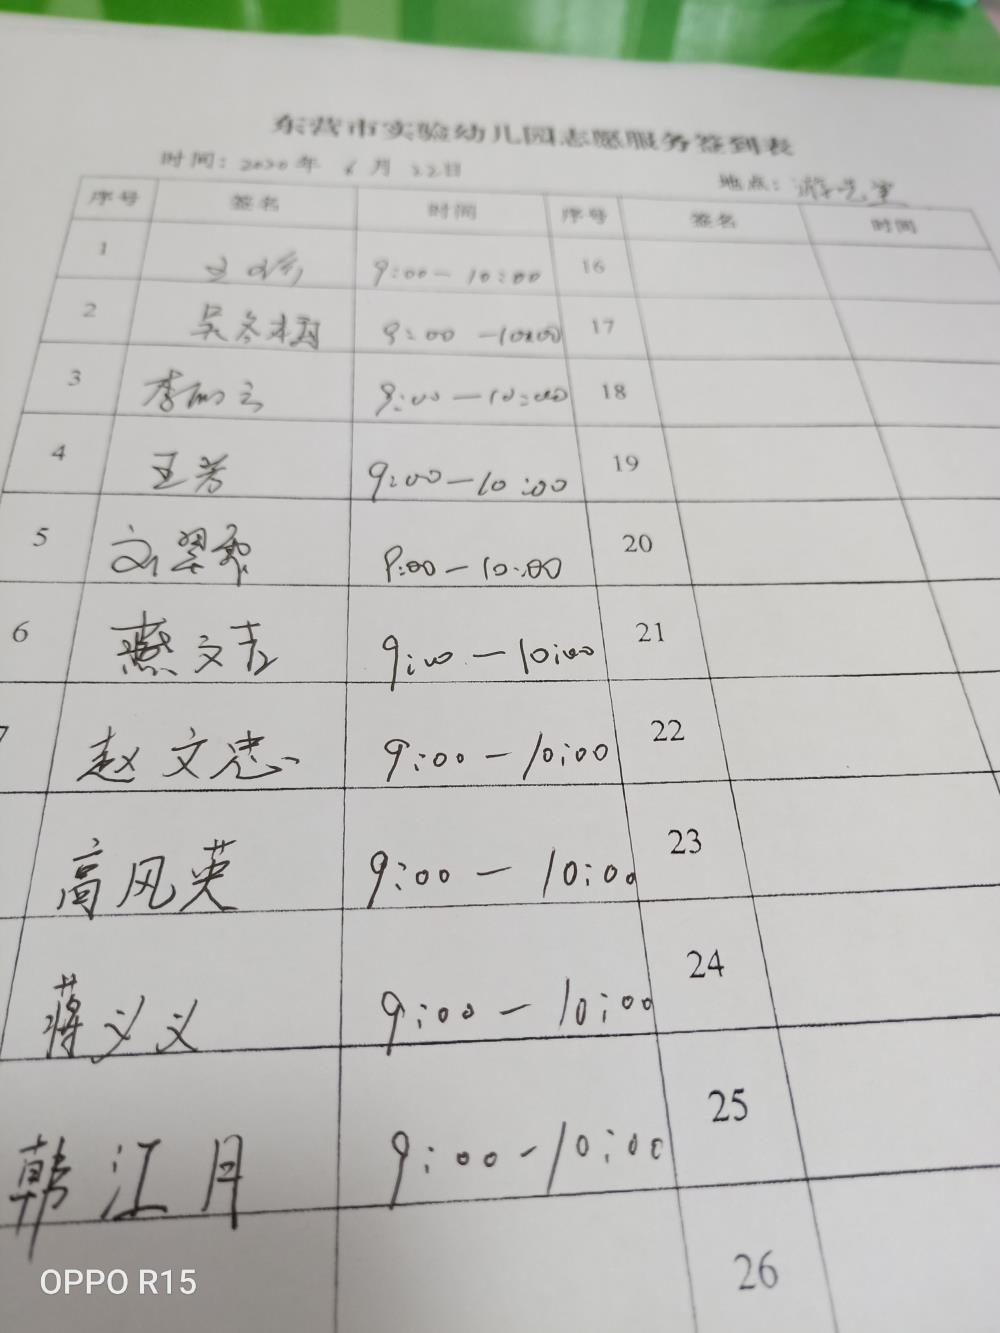 东营市实验幼儿园志愿服务签到表
时间：2020年 6月 22日 地点：游艺室
序号 签名 时间 序号 签名 时间
1 9:00—10:00 16
2 吴冬梅 9:00—10:00 17
3 9:00—10:00 18
4 王芳 9:00—10:00 19
5 刘翠 9:00—10:00 20
6 燕文 9:00—10:00 21
7 赵文忠 9:00—10:00 22
高风英 9:00—10:00 23
蒋义义 9:00—10:00 24
韩江月 9:00—10:00 25
26
OPPO R15